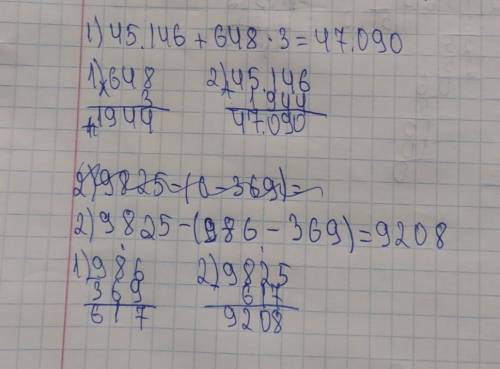 1) 45.146 + 648 · 3 = 47.090
1) × 648 2) + 45.146
3 1 944
1944 47.090
2) 9825 - (0 - 369) =
2) 9825 - (986 - 369) = 9208
1) 986 2) - 9825
369 617
617 9208